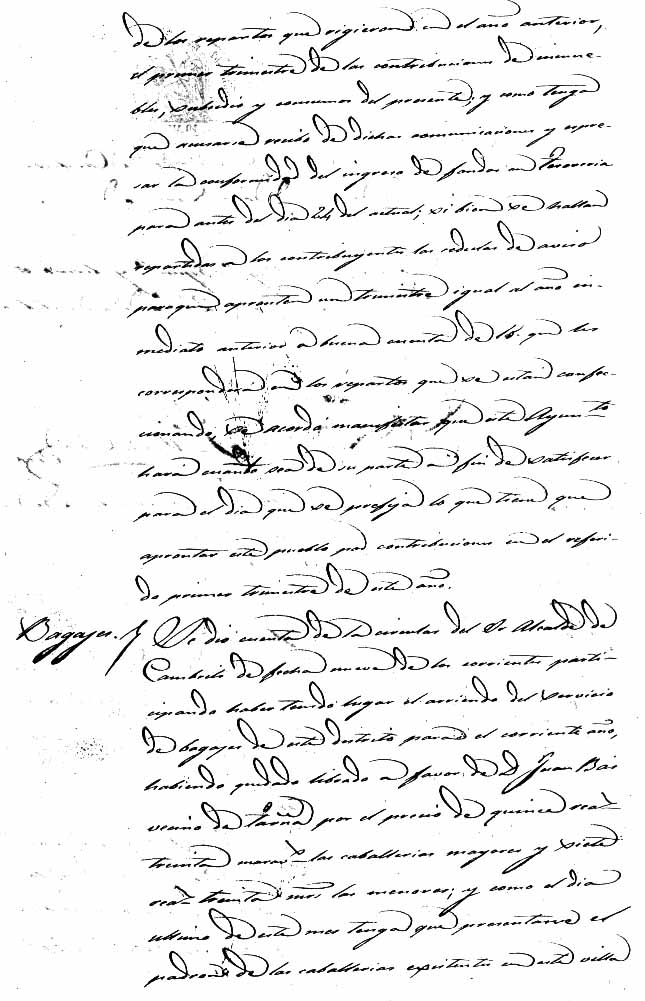 de los repartos que rigieron en el año anterior,
el primer trimestre de las contribuciones de inmue-
bles, subsidio y consumos del presente; y como tenga
que acusarse recibo de dichas comunicaciones y espre-
sar la conformidad del ingreso de fondos en Tesoreria
para antes del dia 24 del actual; si bien se hallan
repartidas a los contribuyentes las cedulas de aviso
para que apronten un trimestre igual al año in-
mediato anterior a buena cuenta de lo que les
corresponderá en los repartos que se estan confec-
cionando, se acordó manifestar que este Ayunto
hará cuanto sea de su parte a fin de satisfacer
para el dia que se prefija lo que tiene que
aprontar este pueblo por contribuciones en el referi-
do primer trimestre de este año.
Bagajes. Se dió cuenta de la circular del Sr Alcalde de
Cambrils de fecha nueve de los corrientes parti-
cipando haber tenido lugar el arriendo del servicio
de bagajes de este distrito para el corriente año,
habiendo quedado librado a favor de D. Juan Bas
vecino de Tarrna por el precio de quince rea
treinta marav las caballerias mayores y siete
rea treinta mrs las menores; y como el dia
ultimo de este mes tenga que presentarse el
padron de las caballerias existentes en esta villa